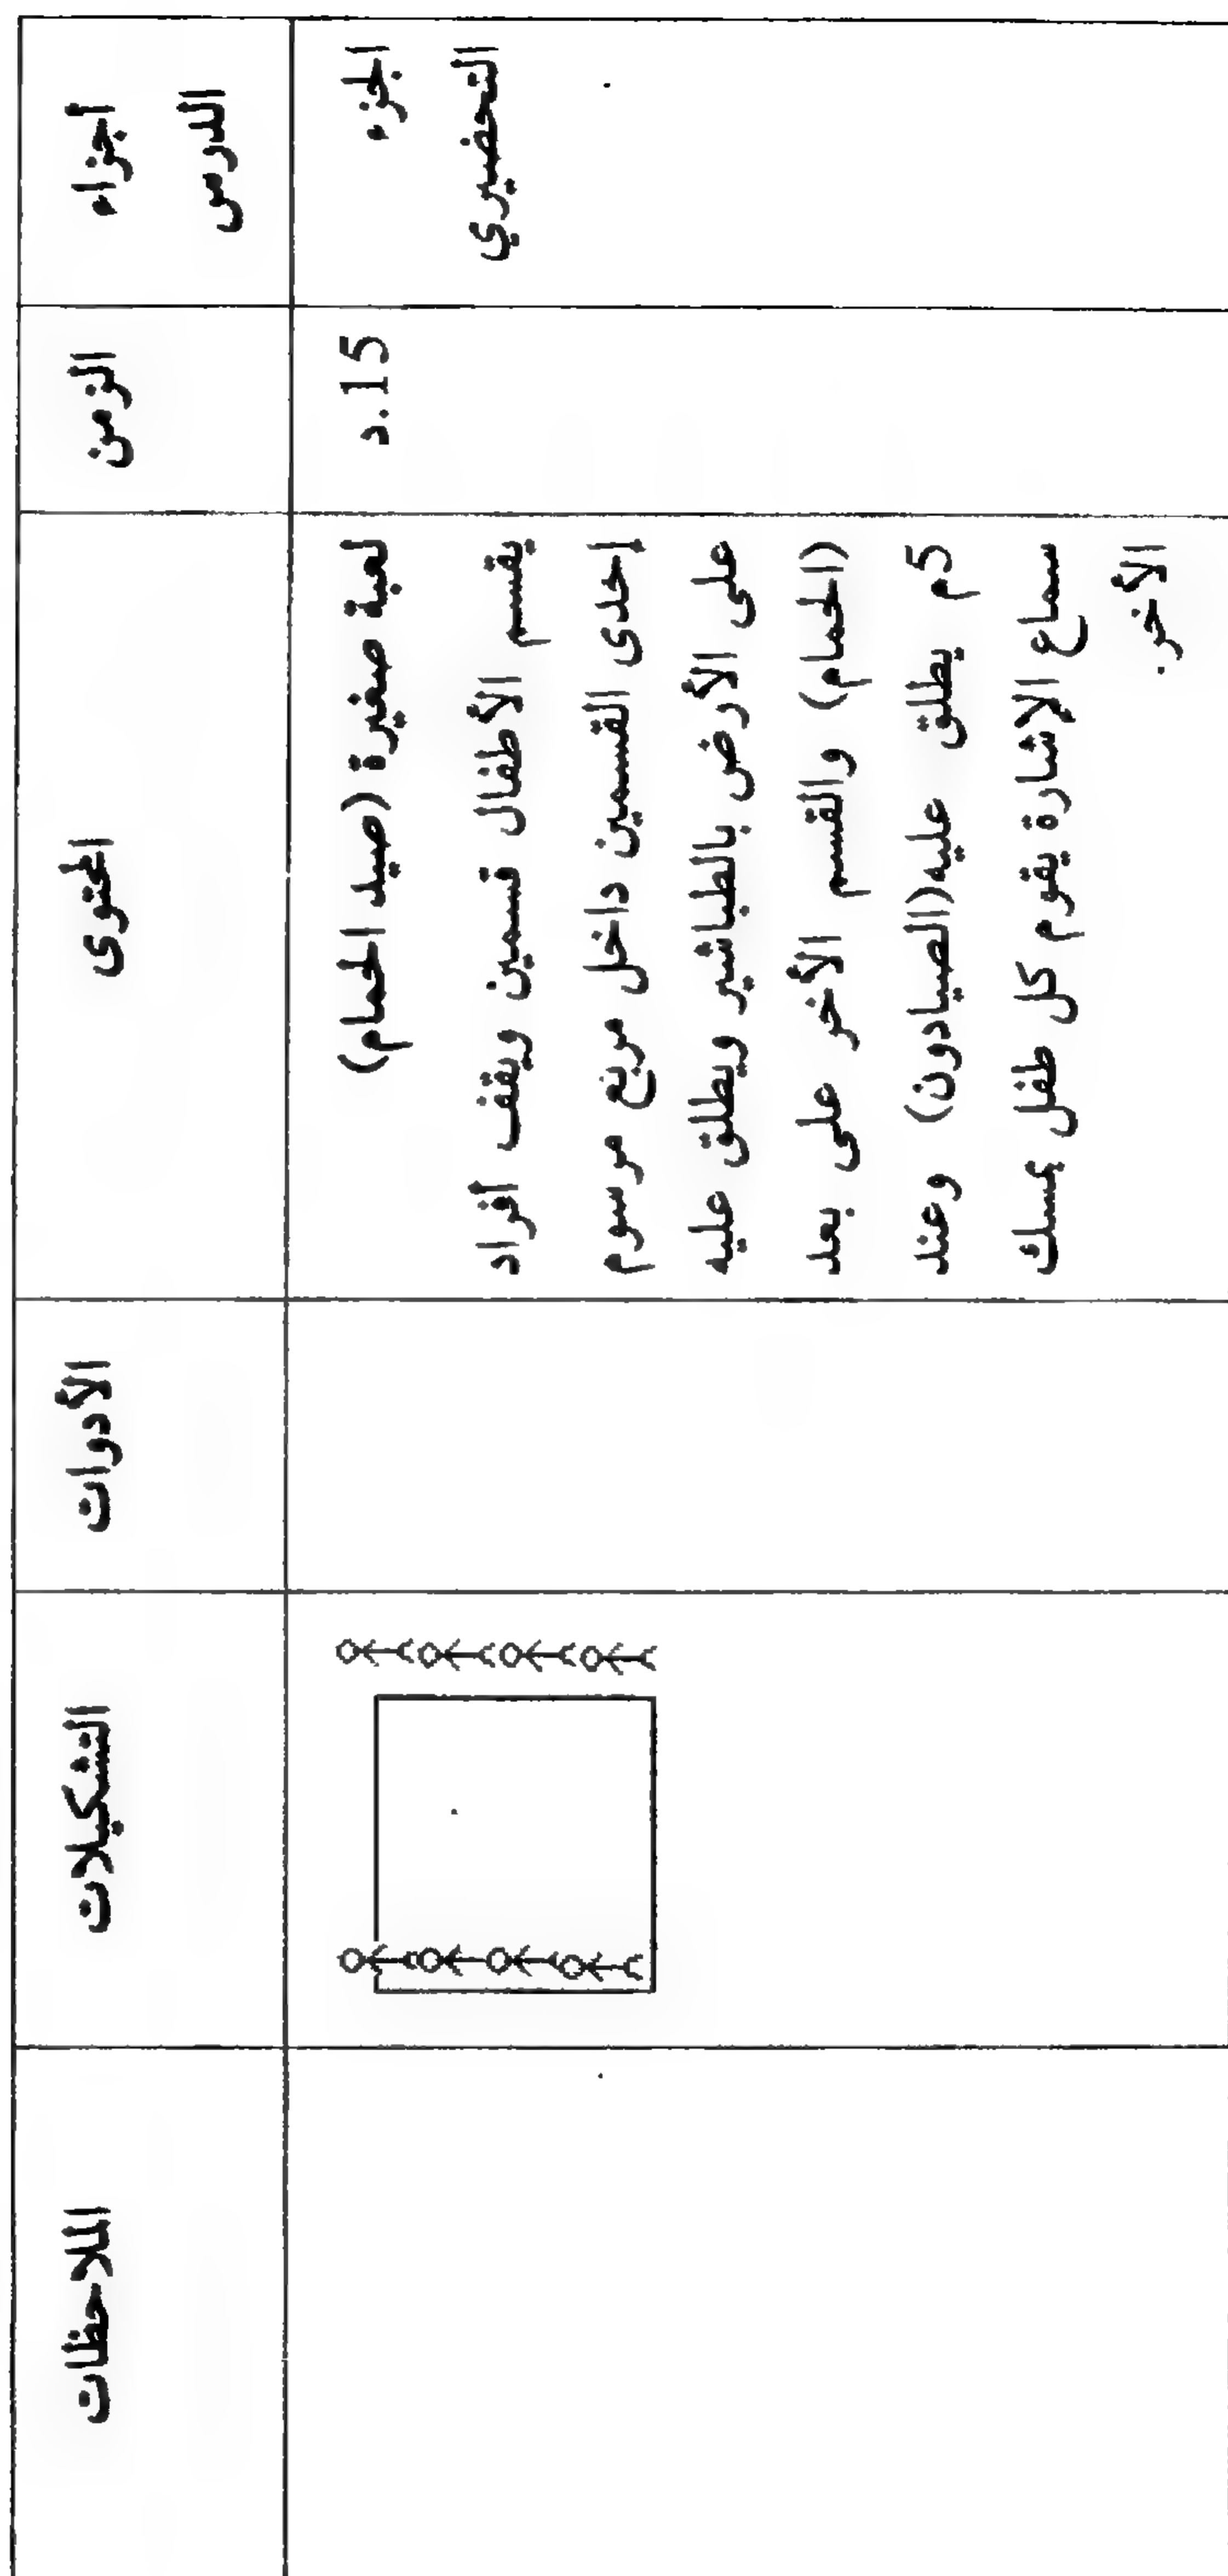 أجزاء
الدرس
الزمن
المحتوى
الأدوات
التشكيلات
الملاحظات
الجزء
التحضيري
15.د
لعبة صغيرة (صيد الحمام)
يقسم الأطفال قسمين ويقف أفراد
إحدى القسمين داخل مربع مرسوم
على الأرض بالطباشير ويطلق عليه
(الحمام) والقسم الآخر على بعد
5م يطلق عليه(الصيادون) وعند
سماع الإشارة يقوم كل طفل بمسك
الأخر.